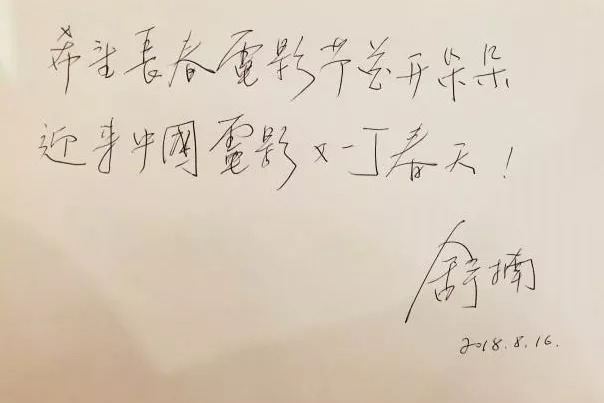 希望長春電影节花开朵朵
迎来中國電影又一个春天！
舒楠
2018.8.16.